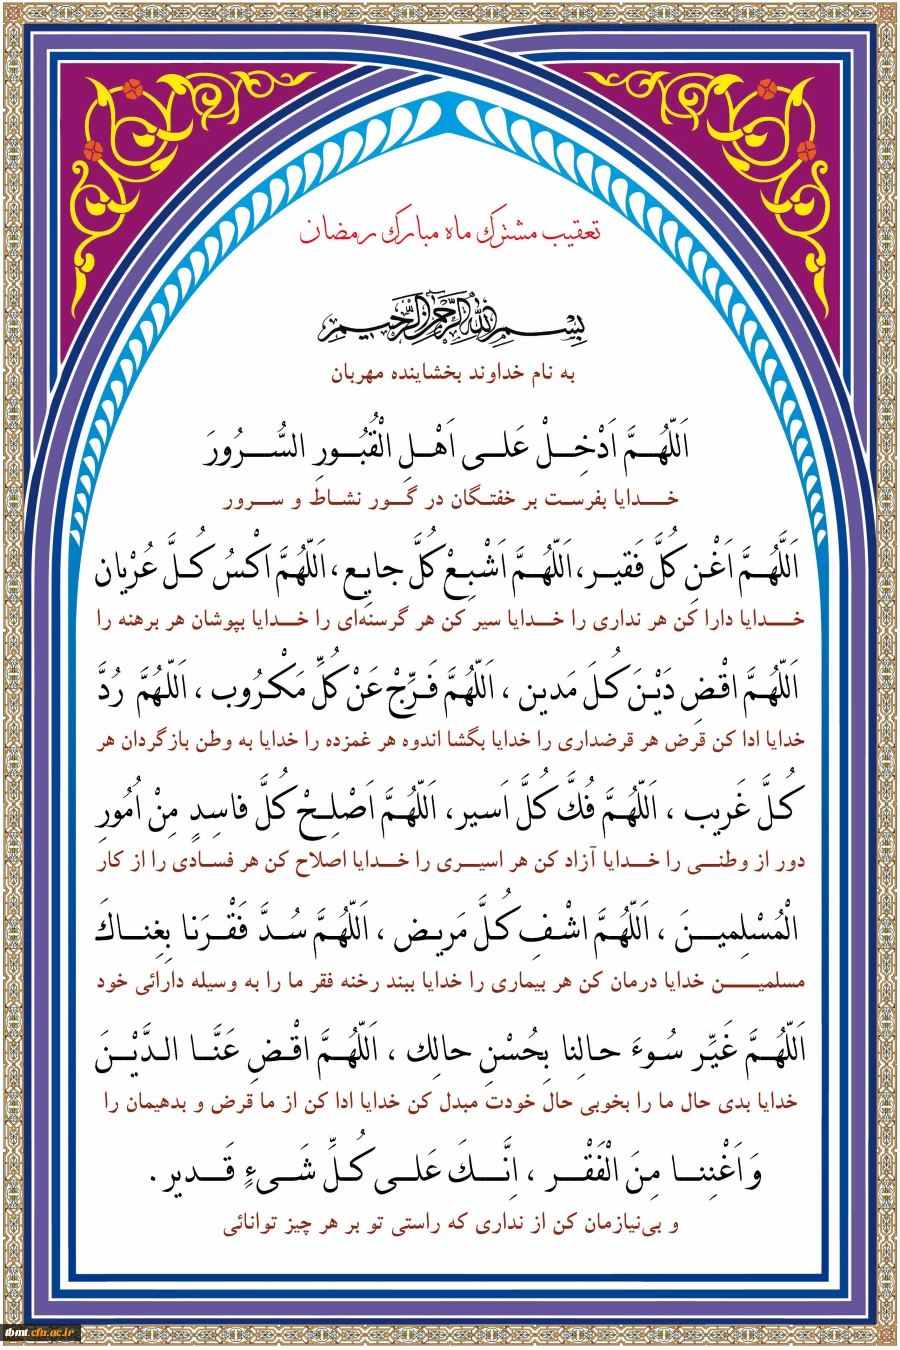 تعقیب مشترک ماه مبارک رمضان
بِسْمِ اللّٰهِ الرَّحْمٰنِ الرَّحیمِ
به نام خداوند بخشاینده مهربان
اَللّهُمَّ اَدْخِلْ عَلی اَهْلِ الْقُبُورِ السُّرُورَ
خدایا بفرست بر خفتگان در گور نشاط و سرور
اَللَّهُمَّ اَغْنِ کُلَّ فَقیر، اَللّهُمَّ اَشْبِعْ کُلَّ جایِع، اَللّهُمَّ اکْسُ کُلَّ عُرْیان
خدایا دارا کن هر نداری را خدایا سیر کن هر گرسنه‌ای را خدایا بپوشان هر برهنه را
اَللّهُمَّ اقْضِ دَیْنَ کُلَ مَدین ، اَللّهُمَّ فَرِّجْ عَنْ کُلِّ مَکْرُوب ، اَللّهُمَّ رُدَّ
خدایا ادا کن قرض هر قرضداری را خدایا بگشا اندوه هر غمزده را خدایا به وطن بازگردان هر
کُلَّ غَریب ، اَللّهُمَّ فُکَّ کُلَّ اَسیر، اَللّهُمَّ اَصْلِحْ کُلَّ فاسِدٍ مِنْ اُمُورِ
دور از وطنی را خدایا آزاد کن هر اسیری را خدایا اصلاح کن هر فسادی را از کار
الْمُسْلِمینَ ، اَللّهُمَّ اشْفِ کُلَّ مَریض ، اَللّهُمَّ سُدَّ فَقْرَنا بِغِناکَ
مسلمین خدایا درمان کن هر بیماری را خدایا ببند رخنه فقر ما را به وسیله دارائی خود
اَللّهُمَّ غَیِّر سُوءَ حالِنا بِحُسْنِ حالِك ، اَللّهُمَّ اقْضِ عَنَّا الدَّیْنَ
خدایا بدی حال ما را بخوبی حال خودت مبدل کن خدایا ادا کن از ما قرض و بدهیمان را
وَ اَغْنِنا مِنَ الْفَقْر ، اِنَّكَ عَلی کُلِّ شَیءٍ قَدیر .
و بی‌نیازمان کن از نداری که راستی تو بر هر چیز توانائی
tbmt.cfu.ac.ir